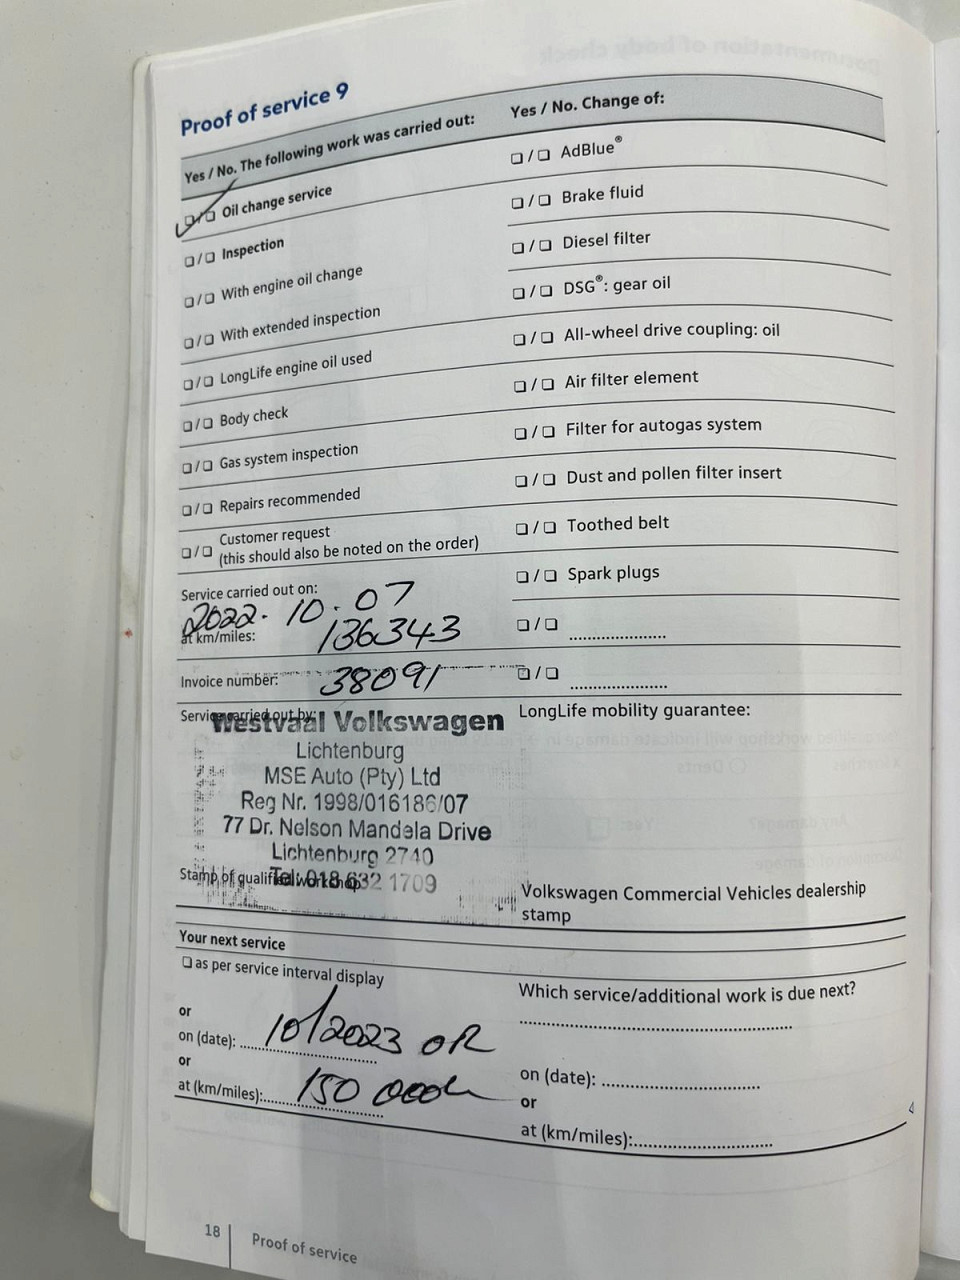 Proof of service 9
Yes / No. The following work was carried out:
❏/❏ Oil change service
❏/❏ Inspection
❏/❏ With engine oil change
❏/❏ With extended inspection
❏/❏ LongLife engine oil used
❏/❏ Body check
❏/❏ Gas system inspection
❏/❏ Repairs recommended
❏/❏ Customer request
(this should also be noted on the order)
Service carried out on:
2022. 10. 07
at km/miles: 136343
Invoice number: 38091
Service carried out by:
Westvaal Volkswagen
Lichtenburg
MSE Auto (Pty) Ltd
Reg Nr. 1998/016186/07
77 Dr. Nelson Mandela Drive
Lichtenburg 2740
Tel: 018 632 1709
Stamp of qualified workshop
Yes / No. Change of:
❏/❏ AdBlue®
❏/❏ Brake fluid
❏/❏ Diesel filter
❏/❏ DSG®: gear oil
❏/❏ All-wheel drive coupling: oil
❏/❏ Air filter element
❏/❏ Filter for autogas system
❏/❏ Dust and pollen filter insert
❏/❏ Toothed belt
❏/❏ Spark plugs
❏/❏ ....................
❏/❏ ....................
LongLife mobility guarantee:
Volkswagen Commercial Vehicles dealership
stamp
Your next service
❏ as per service interval display
or
on (date): 10/2023 OR
or
at (km/miles): 150 000
Which service/additional work is due next?
on (date): ....................
or
at (km/miles): ....................
18 Proof of service